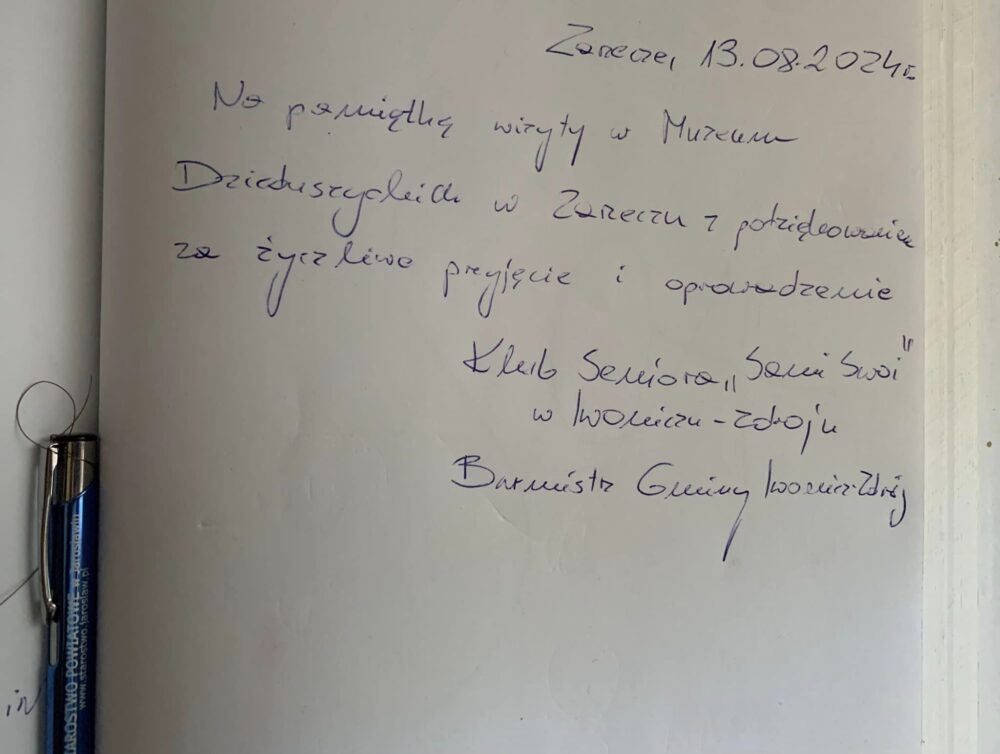 Zarzecze, 13.08.2024r.
Na pamiątkę wizyty w Muzeum
Dzieduszyckich w Zarzeczu z podziękowaniem
za życzliwe przyjęcie i oprowadzenie
Klub Seniora „Sami Swoi"
w Iwoniczu-Zdroju
Burmistrz Gminy Iwonicz-Zdrój
STAROSTWO POWIATOWE w Jarosławiu
www.starostwo.jaroslaw.pl